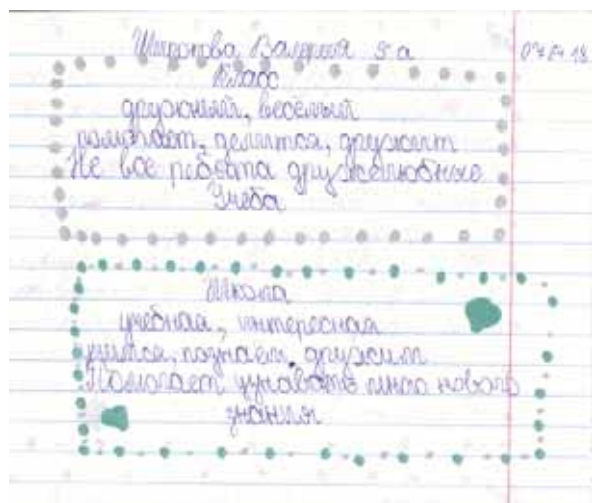 Валерия 5 а
Класс
дружный, весёлый
помогает, делится, дружит
Не все ребята дружелюбные
Учёба
Школа
учебная, интересная
учится, познаёт, дружит
Помогает узнавать много нового
знания